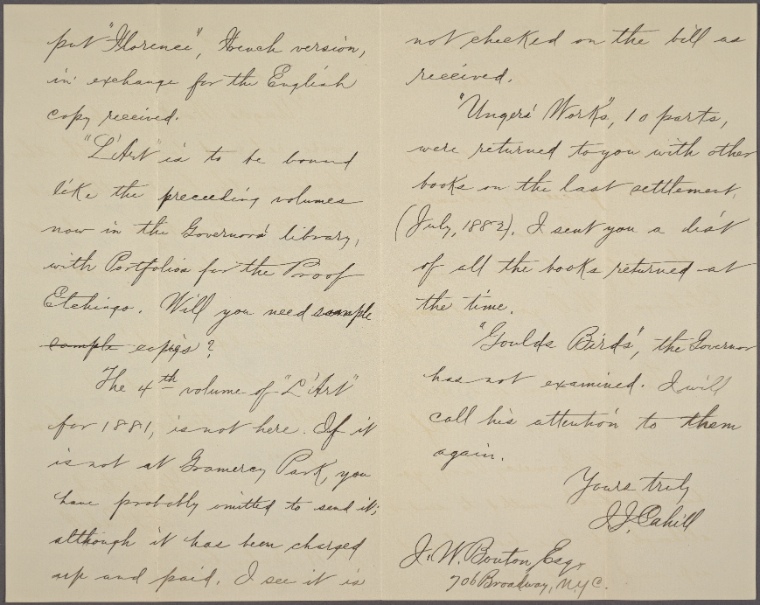 put "Florence", French version,
in exchange for the English
copy received.
"L'Art" is to be bound
like the preceding volumes
now in the Governor's library,
with Portfolios for the Proof
Etchings. Will you need sample
sample copies?
The 4th volume of "L'Art"
for 1881, is not here. If it
is not at Gramercy Park, you
have probably omitted to send it;
although it has been charged
up and paid. I see it is
not checked on the bill as
received.
"Ungers' Works", 10 parts,
were returned to you with other
books on the last settlement,
(July, 1882). I sent you a list
of all the books returned at
the time.
"Goulds Birds", the Governor
has not examined. I will
call his attention to them
again.
Yours truly
J.J. Cahill
J. W. Bouton, Esq.
706 Broadway, N.Y.C.